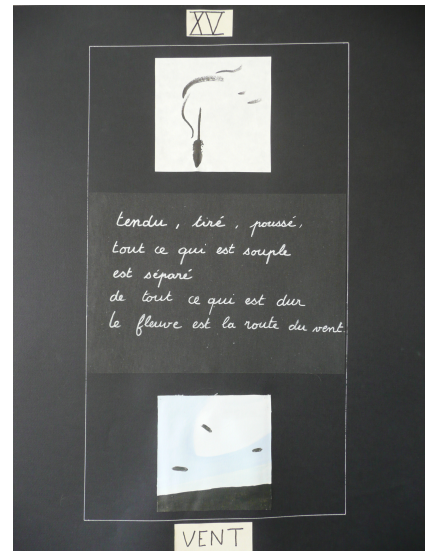 XV
tendu, tiré, poussé,
tout ce qui est souple
est séparé
de tout ce qui est dur
le fleuve est la route du vent.
VENT